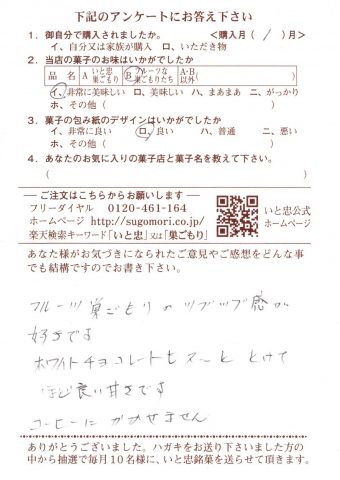 下記のアンケートにお答え下さい
1．御自分で購入されましたか。 <購入月( / )月>
イ、自分又は家族が購入 ロ、いただき物
2．当店の菓子のお味はいかがでしたか
品 名 A いと忠巣ごもり B フルーツな巣ごもりたち A・B以外( )
イ、非常に美味しい ロ、美味しい ハ、まあまあ ニ、がっかり
ホ、その他( )
3．菓子の包み紙のデザインはいかがでしたか
イ、非常に良い ロ、良い ハ、普通 ニ、悪い
ホ、その他( )
4．あなたのお気に入りの菓子店と菓子名を教えて下さい。
( )
ご注文はこちらからお願いします
フリーダイヤル 0120-461-164
ホームページ http://sugomori.co.jp/
楽天検索キーワード「いと忠」又は「巣ごもり」
いと忠公式
ホームページ
あなた様がお気づきになられたご意見やご感想をどんな事
でも結構ですのでお書き下さい。
フルーツ巣ごもりのツブツブ感が
好きです
ホワイトチョコレートもスーと とけて
ほど良い甘さです
コーヒーに かかせません
ありがとうございました。ハガキをお送り下さいました方の
中から抽選で毎月10名様に、いと忠銘菓を送らせて頂きます。